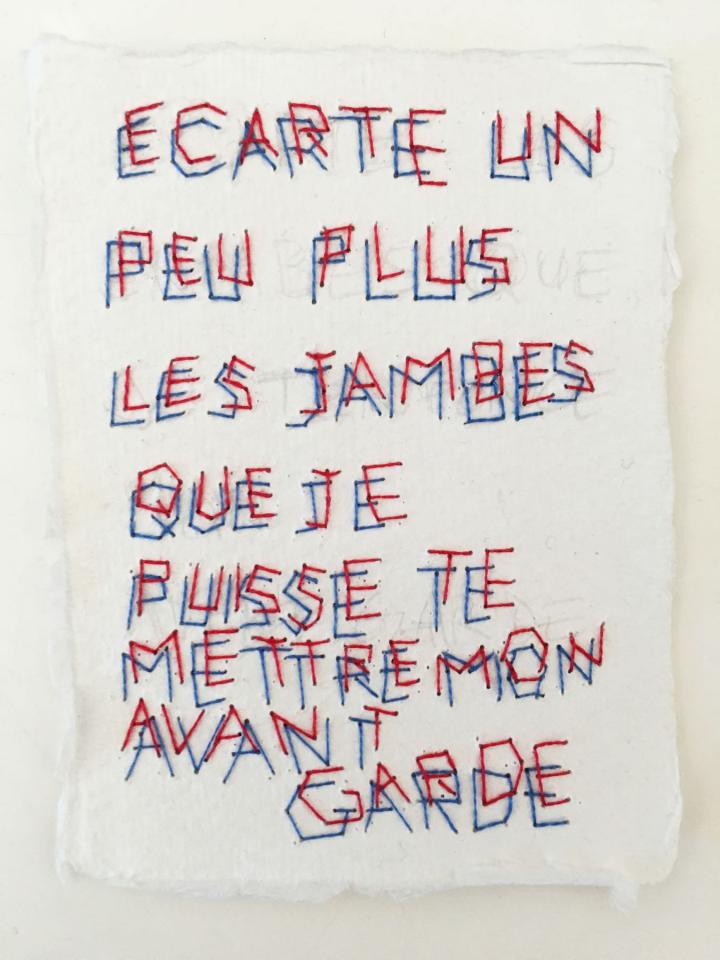 ECARTE UN
PEU PLUS
LES JAMBES
QUE JE
PUISSE TE
METTRE MON
AVANT
GARDE